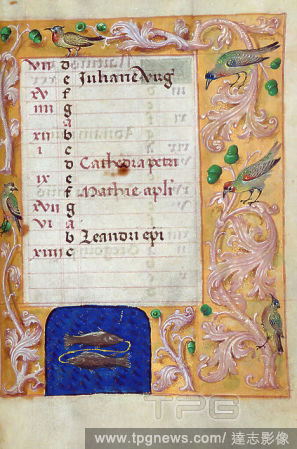 vii d
e Juliane virg
xv f
iiii g
a
xii b
i c
d Cathedra petri
ix e
f Mathie apli
xvii g
vi a
b Leandri epi
xiiii c
TPG
www.tpgnews.com/ 達志影像